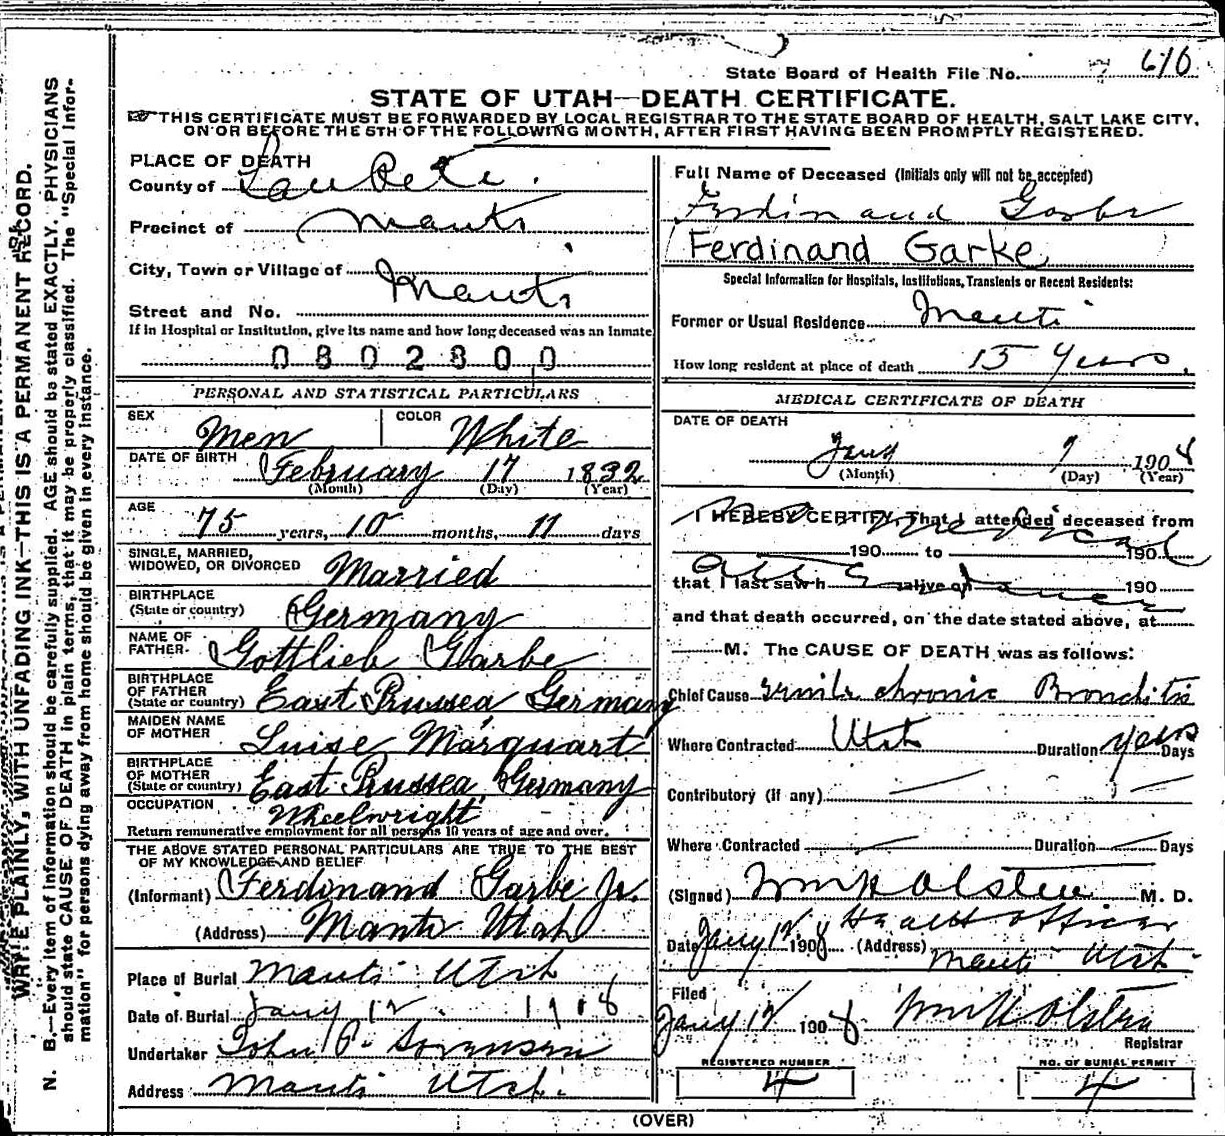 State Board of Health File No. 610
STATE OF UTAH—DEATH CERTIFICATE.
THIS CERTIFICATE MUST BE FORWARDED BY LOCAL REGISTRAR TO THE STATE BOARD OF HEALTH, SALT LAKE CITY,
ON OR BEFORE THE 5TH OF THE FOLLOWING MONTH, AFTER FIRST HAVING BEEN PROMPTLY REGISTERED.
WRITE PLAINLY, WITH UNFADING INK—THIS IS A PERMANENT RECORD.
N. B.—Every item of information should be carefully supplied. AGE should be stated EXACTLY. PHYSICIANS
should state CAUSE OF DEATH in plain terms, that it may be properly classified. The "Special Infor-
mation" for persons dying away from home should be given in every instance.
PLACE OF DEATH
County of San Pete.
Precinct of Manti
City, Town or Village of Manti
Street and No.
If in Hospital or Institution, give its name and how long deceased was an Inmate
0802800
PERSONAL AND STATISTICAL PARTICULARS
SEX Men COLOR White
DATE OF BIRTH February 17 1832
(Month) (Day) (Year)
AGE 75 years, 10 months, 11 days
SINGLE, MARRIED,
WIDOWED, OR DIVORCED Married
BIRTHPLACE
(State or country) Germany
NAME OF
FATHER Gottlieb Garbe
BIRTHPLACE
OF FATHER
(State or country) East Prussea Germany
MAIDEN NAME
OF MOTHER Luise Marquart
BIRTHPLACE
OF MOTHER
(State or country) East Prussea Germany
OCCUPATION Wheelwright
Return remunerative employment for all persons 10 years of age and over.
THE ABOVE STATED PERSONAL PARTICULARS ARE TRUE TO THE BEST
OF MY KNOWLEDGE AND BELIEF
(Informant) Ferdinand Garbe Jr.
(Address) Manti Utah
Place of Burial Manti Utah
Date of Burial Jany 12 1908
Undertaker John P. Sorensen
Address Manti Utah.
Full Name of Deceased (Initials only will not be accepted)
Ferdinand Garbe
Ferdinand Garke
Special Information for Hospitals, Institutions, Transients or Recent Residents:
Former or Usual Residence Manti
How long resident at place of death 15 Years.
MEDICAL CERTIFICATE OF DEATH
DATE OF DEATH
Jany 9 1908
(Month) (Day) (Year)
I HEREBY CERTIFY, That I attended deceased from
190 to 190
that I last saw h alive on 190
No medical
Attendance
and that death occurred, on the date stated above, at
M. The CAUSE OF DEATH was as follows:
Chief Cause senile chronic Bronchitis
Where Contracted Utah Duration years Days
Contributory (if any)
Where Contracted Duration Days
(Signed) Wm H Olsten M. D.
Health officer
Date Jany 12 1908 (Address) Manti Utah
Filed
Jany 12 1908 Wm H Olsten
Registrar
REGISTERED NUMBER
4
NO. OF BURIAL PERMIT
4
(OVER)